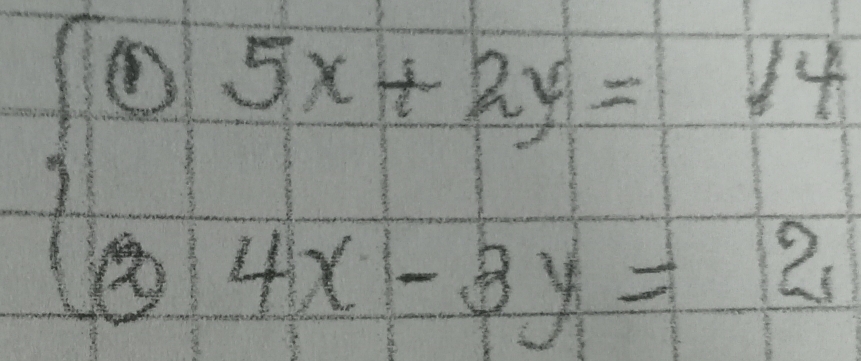 ① 5x + 2y = 14
② 4x - 3y = 2